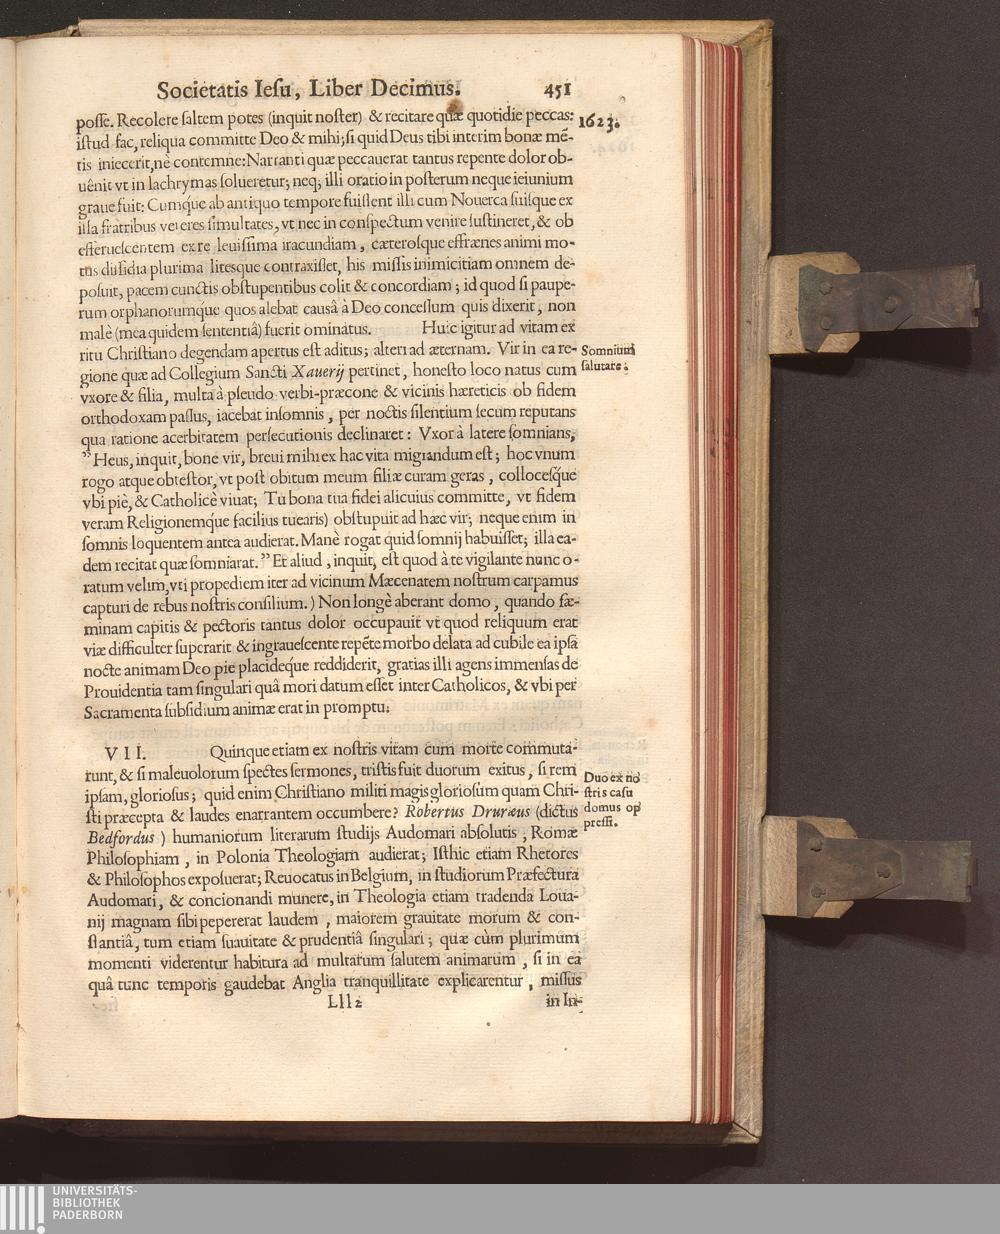 Societatis Iesu, Liber Decimus. 451
posse. Recolere saltem potes (inquit noster) & recitare quæ quotidie peccas: 1623.
istud fac, reliqua committe Deo & mihi; si quid Deus tibi interim bonæ mē-
tis iniecerit, ne contemne: Narranti quæ peccauerat tantus repente dolor ob-
uênit vt in lachrymas solueretur; neq; illi oratio in posterum neque ieiunium
graue fuit: Cumq́ue ab antiquo tempore fuissent illi cum Nouerca suisque ex
illa fratribus veteres simultates, vt nec in conspectum venire sustineret, & ob
efferuescentem ex re leuissima iracundiam, cæterosque effrænes animi mo-
tus dissidia plurima litesque contraxisset, his missis inimicitiam omnem de-
posuit, pacem cunctis obstupentibus colit & concordiam; id quod si paupe-
rum orphanorumq́ue quos alebat causâ à Deo concessum quis dixerit, non
malè (mea quidem sententiâ) fuerit ominatus. Huic igitur ad vitam ex
ritu Christiano degendam apertus est aditus; alteri ad æternam. Vir in ea re-
Somnium
salutare.
gione quæ ad Collegium Sancti Xauerij pertinet, honesto loco natus cum
vxore & filia, multa à pseudo verbi-præcone & vicinis hæreticis ob fidem
orthodoxam passus, iacebat insomnis, per noctis silentium secum reputans
qua ratione acerbitatem persecutionis declinaret: Vxor à latere somnians,
" Heus, inquit, bone vir, breui mihi ex hac vita migrandum est; hoc vnum
rogo atque obtestor, vt post obitum meum filiæ curam geras, collocesq́ue
vbi piè, & Catholicè viuat; Tu bona tua fidei alicuius committe, vt fidem
veram Religionemq́ue facilius tuearis) obstupuit ad hæc vir; neque enim in
somnis loquentem antea audierat. Manè rogat quid somnij habuisset; illa ea-
dem recitat quæ somniarat. " Et aliud, inquit, est quod à te vigilante nunc o-
ratum velim, vti propediem iter ad vicinum Mæcenatem nostrum carpamus
capturi de rebus nostris consilium.) Non longè aberant domo, quando fæ-
minam capitis & pectoris tantus dolor occupauit vt quod reliquum erat
viæ difficulter superarit & ingrauescente repētè morbo delata ad cubile ea ipsâ
nocte animam Deo pie placideq́ue reddiderit, gratias illi agens immensas de
Prouidentia tam singulari quâ mori datum esset inter Catholicos, & vbi per
Sacramenta subsidium animæ erat in promptu.
VII. Quinque etiam ex nostris vitam cum morte commuta-
runt, & si maleuolorum spectes sermones, tristis fuit duorum exitus, si rem
Duo ex no
stris casu
domus op
pressi.
ipsam, gloriosus; quid enim Christiano militi magis gloriosum quam Chri-
sti præcepta & laudes enarrantem occumbere? Robertus Druræus (dictus
Bedfordus) humaniorum literarum studijs Audomari absolutis, Romæ
Philosophiam, in Polonia Theologiam audierat; Isthic etiam Rhetores
& Philosophos exposuerat; Reuocatus in Belgium, in studiorum Præfectura
Audomari, & concionandi munere, in Theologia etiam tradenda Loua-
nij magnam sibi pepererat laudem, maiorem grauitate morum & con-
stantiâ, tum etiam suauitate & prudentiâ singulari; quæ cùm plurimum
momenti viderentur habitura ad multarum salutem animarum, si in ea
quâ tunc temporis gaudebat Anglia tranquillitate explicarentur, missus
Lll2 in In-
UNIVERSITÄTS-
BIBLIOTHEK
PADERBORN